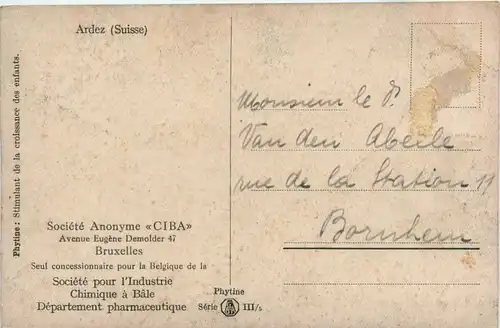 Ardez (Suisse)
Phytine: Stimulant de la croissance des enfants.
Monsieur le Dr
Van den Abeele
rue de la Station 11
Bornhem
Société Anonyme «CIBA»
Avenue Eugène Demolder 47
Bruxelles
Seul concessionnaire pour la Belgique de la
Société pour l'Industrie
Chimique à Bâle
Département pharmaceutique
Phytine
Série III/5